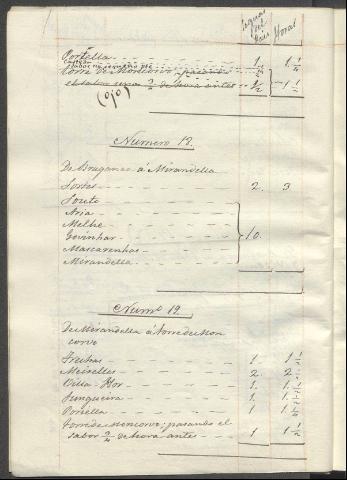 Leguas del Pais Horas
Portella 1. 1 1/4
Torre de Moncorvo pasando
el sabor 1 1/2
Numero 18.
De Braganca á Mirandella
Sortes 2. 3
Souto
Aria
Melhe
Govinhar 10.
Mascarenhas
Mirandella
Numo 19.
De Mirandella á torre de Mon
corvo
Frechas 1. 1 1/2
Meirelles 2. 2 1/2
Villa-Flor 1. 1. 1/2
Junqueira 1. 1. 1/2
Portella 1. 1 1/4
Torre de Moncorvo; pasando el
sabor 3/4 de hora antes 1 1 1/2